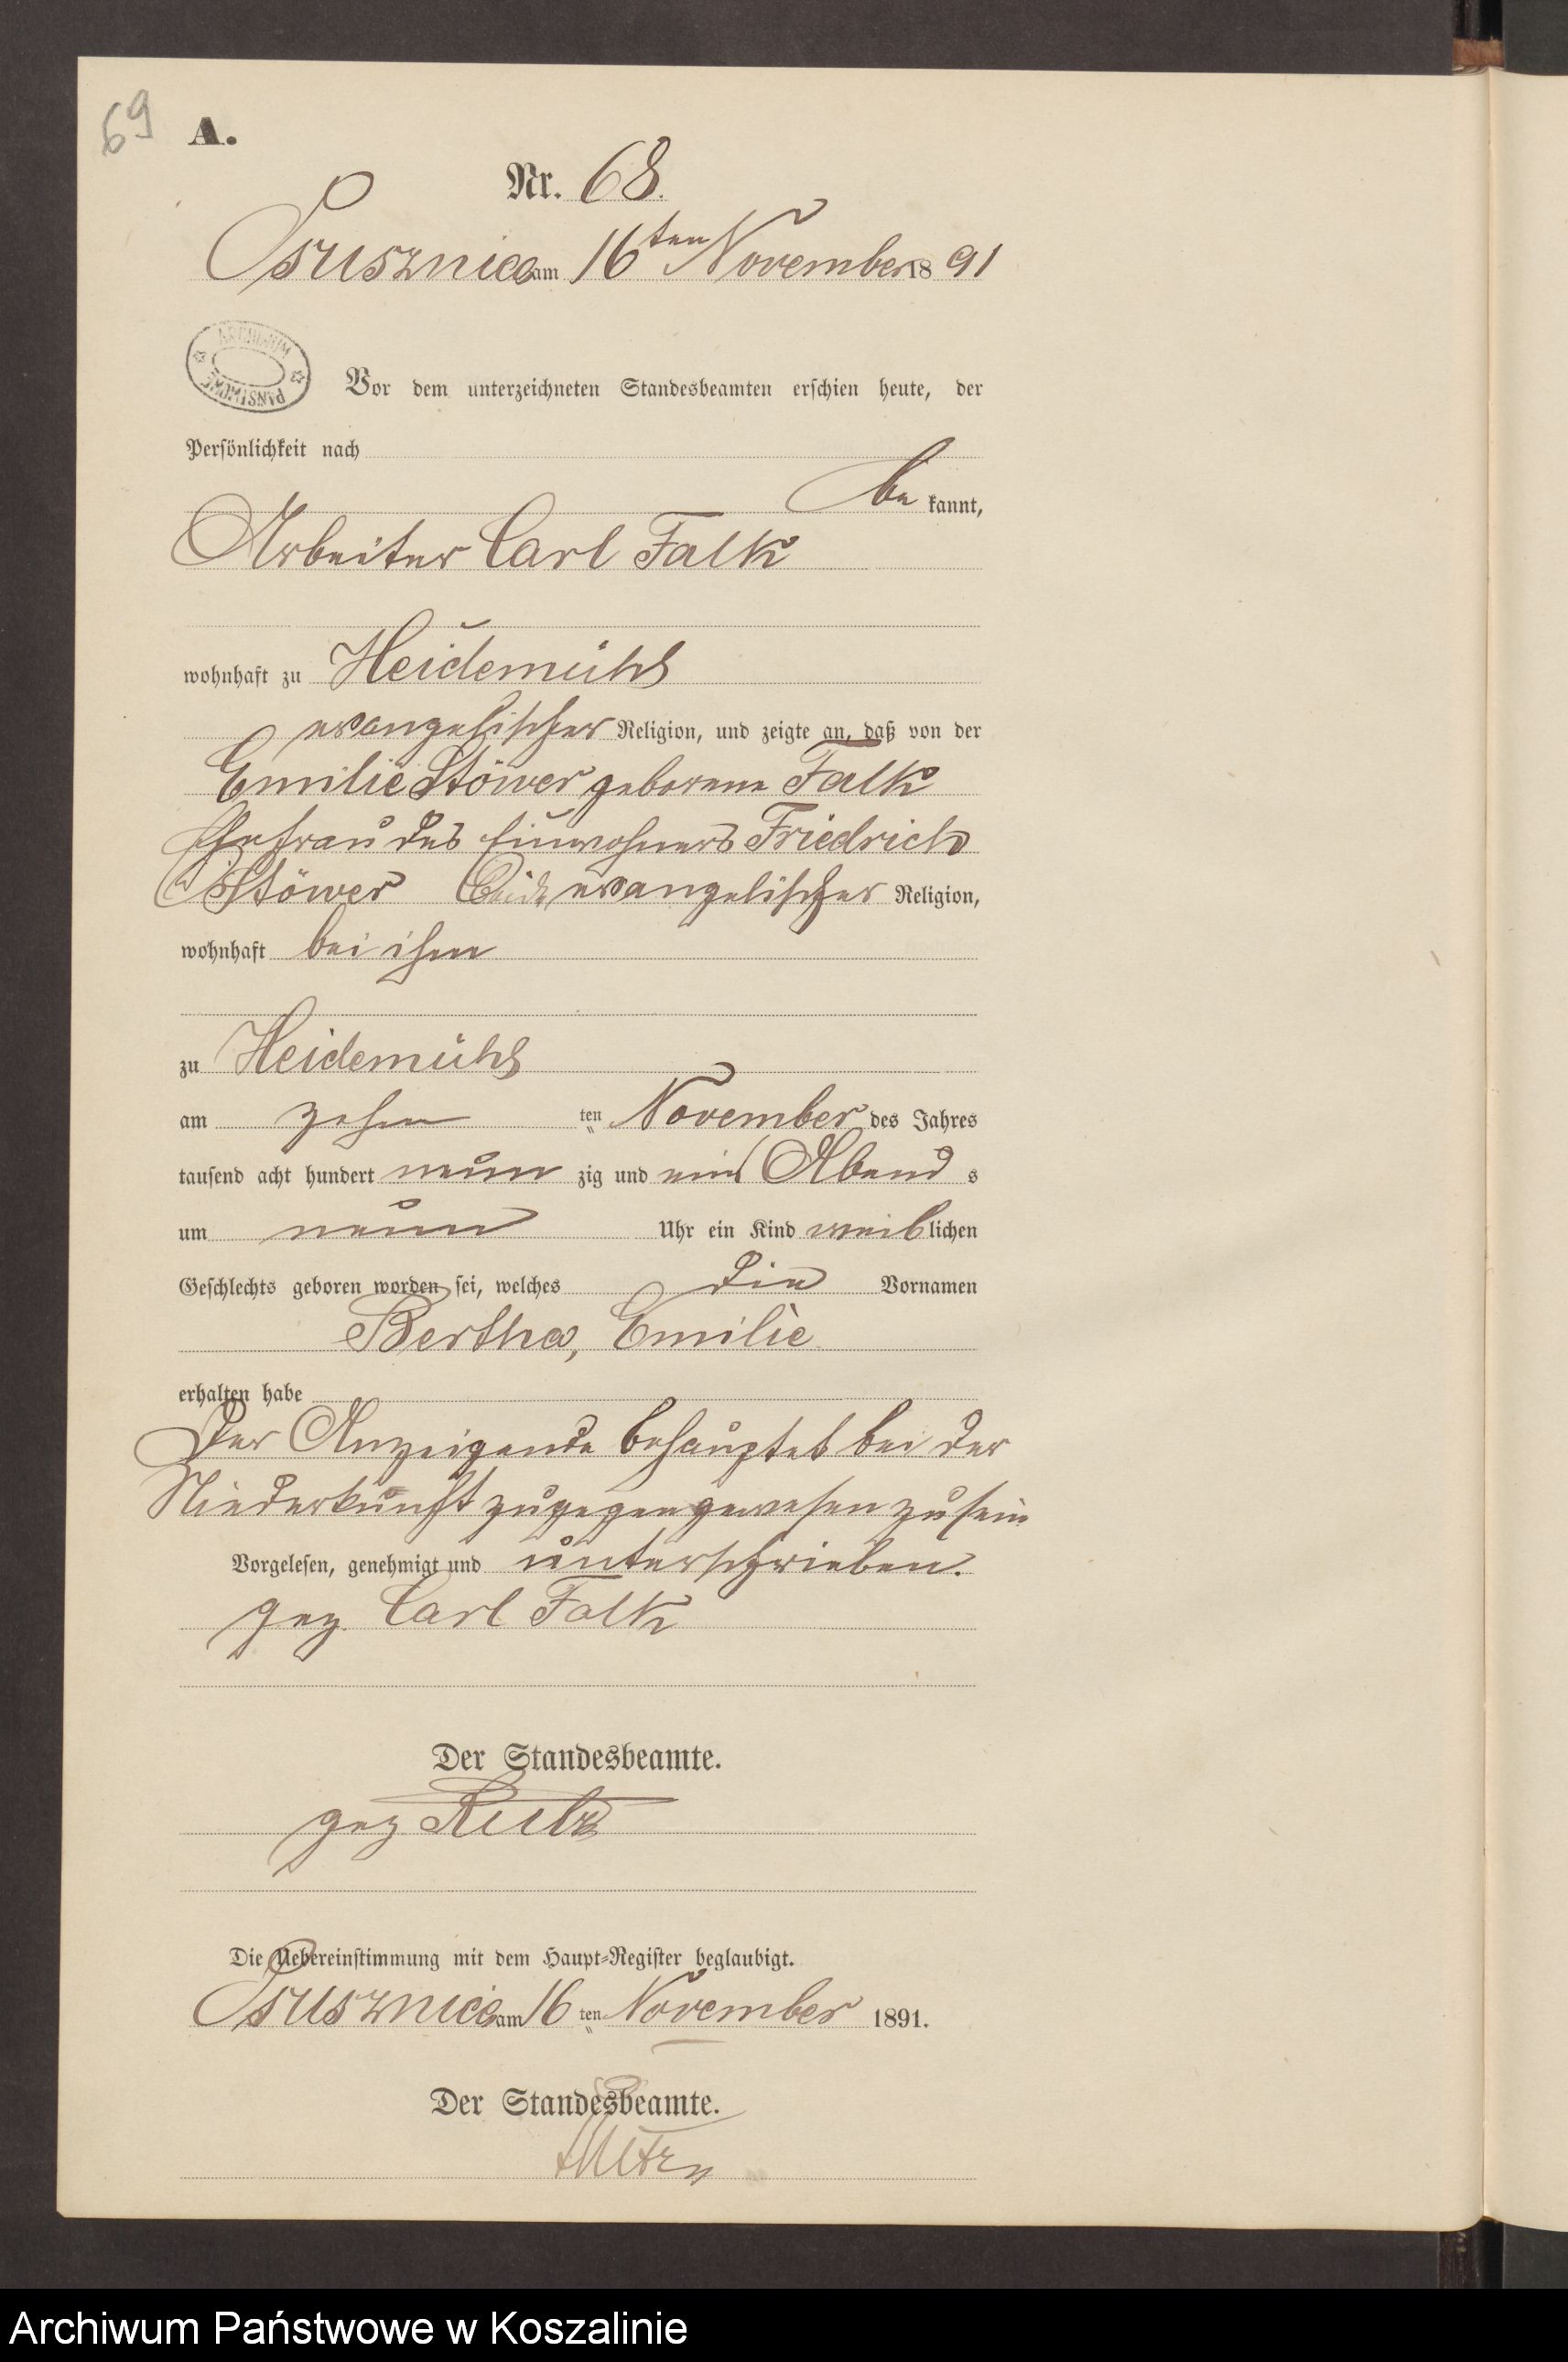 69
A.
Nr. 68.
Osusznica am 16ten November 1891
ARCHIWUM
PAŃSTWOWE
Vor dem unterzeichneten Standesbeamten erschien heute, der
Persönlichkeit nach
be kannt,
Arbeiter Carl Falk
wohnhaft zu Heidemühl
evangelischer Religion, und zeigte an, daß von der
Emilie Stöwer geborene Falk
Ehefrau des Einwohners Friedrich
Stöwer Beide evangelischer Religion,
wohnhaft bei ihm
zu Heidemühl
am zehn ten November des Jahres
tausend acht hundert neun zig und eins Abend s
um neun Uhr ein Kind weiblichen
Geschlechts geboren worden sei, welches die Vornamen
Bertha, Emilie
erhalten habe
Der Anzeigende behauptet bei der
Niederkunft zugegen gewesen zu sein
Vorgelesen, genehmigt und unterschrieben.
gez. Carl Falk
Der Standesbeamte.
gez
Die Uebereinstimmung mit dem Haupt-Register beglaubigt.
Osusznica am 16 ten November 1891.
Der Standesbeamte.
Archiwum Państwowe w Koszalinie